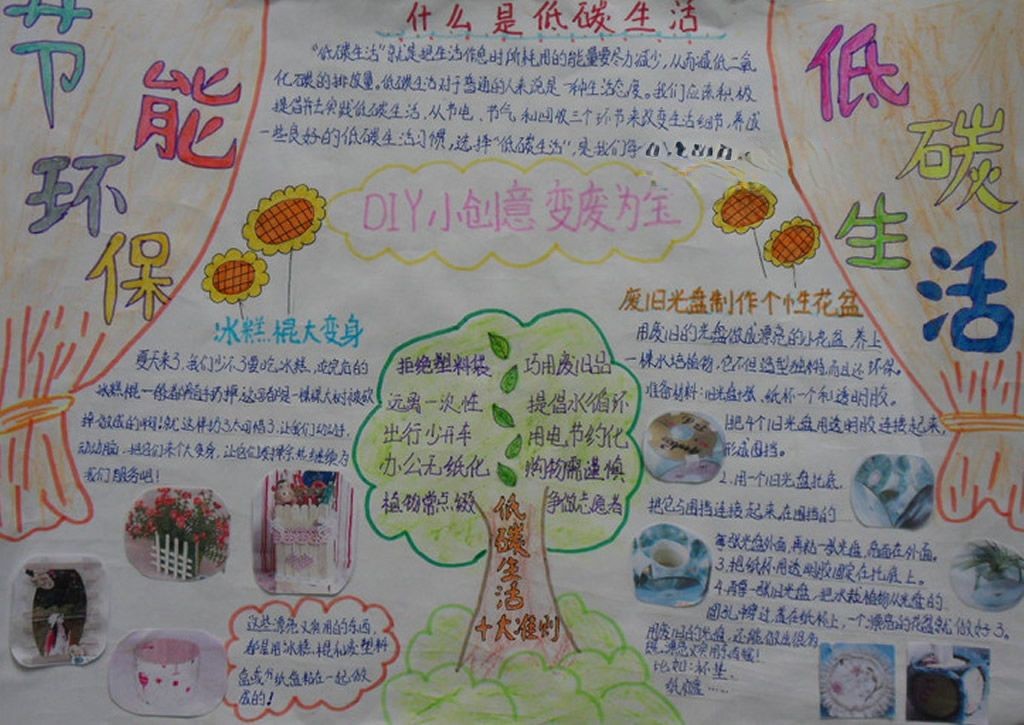 节能环保
低碳生活
什么是低碳生活
"低碳生活"就是把生活作息时所耗用的能量要尽力减少,从而减低二氧
化碳的排放量。低碳生活对于普通的人来说是一种生活态度。我们应该积极
提倡并去实践低碳生活,从节电、节气和回收三个环节来改变生活细节,养成
一些良好的低碳生活习惯,选择"低碳生活",是我们每
DIY小创意 变废为宝
冰糕棍大变身
夏天来了,我们少不了要吃冰糕,
冰糕棍一般都随手扔掉,这可都是一棵棵大树被砍
掉做成的啊!就这样扔了太可惜了,让我们动动手,
动动脑,把它们来个大变身,让它们继续为
我们服务吧!
这些漂亮又实用的东西
都是用冰糕棍和废塑料
盒或方纸盒粘在一起做
成的!
拒绝塑料袋 巧用废旧品
远离一次性 提倡水循环
出行少开车 用电节约化
办公无纸化 购物需谨慎
植物常点缀 争做志愿者
低碳生活
十大准则
废旧光盘制作个性花盆
用废旧的光盘做成漂亮的小花盆,养上
一棵水培植物,它不但造型独特,而且还环保。
准备材料:旧光盘 纸杯一个和透明胶。
1.把4个旧光盘用透明胶连接起来,
形成围挡。
2.用一个旧光盘托底,
把它与围挡连接起来,在围挡的
每张光盘外面,再粘一张光盘,亮面在外面。
3.把纸杯用透明胶固定在托底上。
4.再拿一张旧光盘,把水栽植物从光盘的
圆孔中穿过,盖在纸杯上,一个漂亮的花盆就做好了。
用废旧的光盘,还能做出很多
漂亮又实用的东西呢!
比如:杯垫、
纸盒……